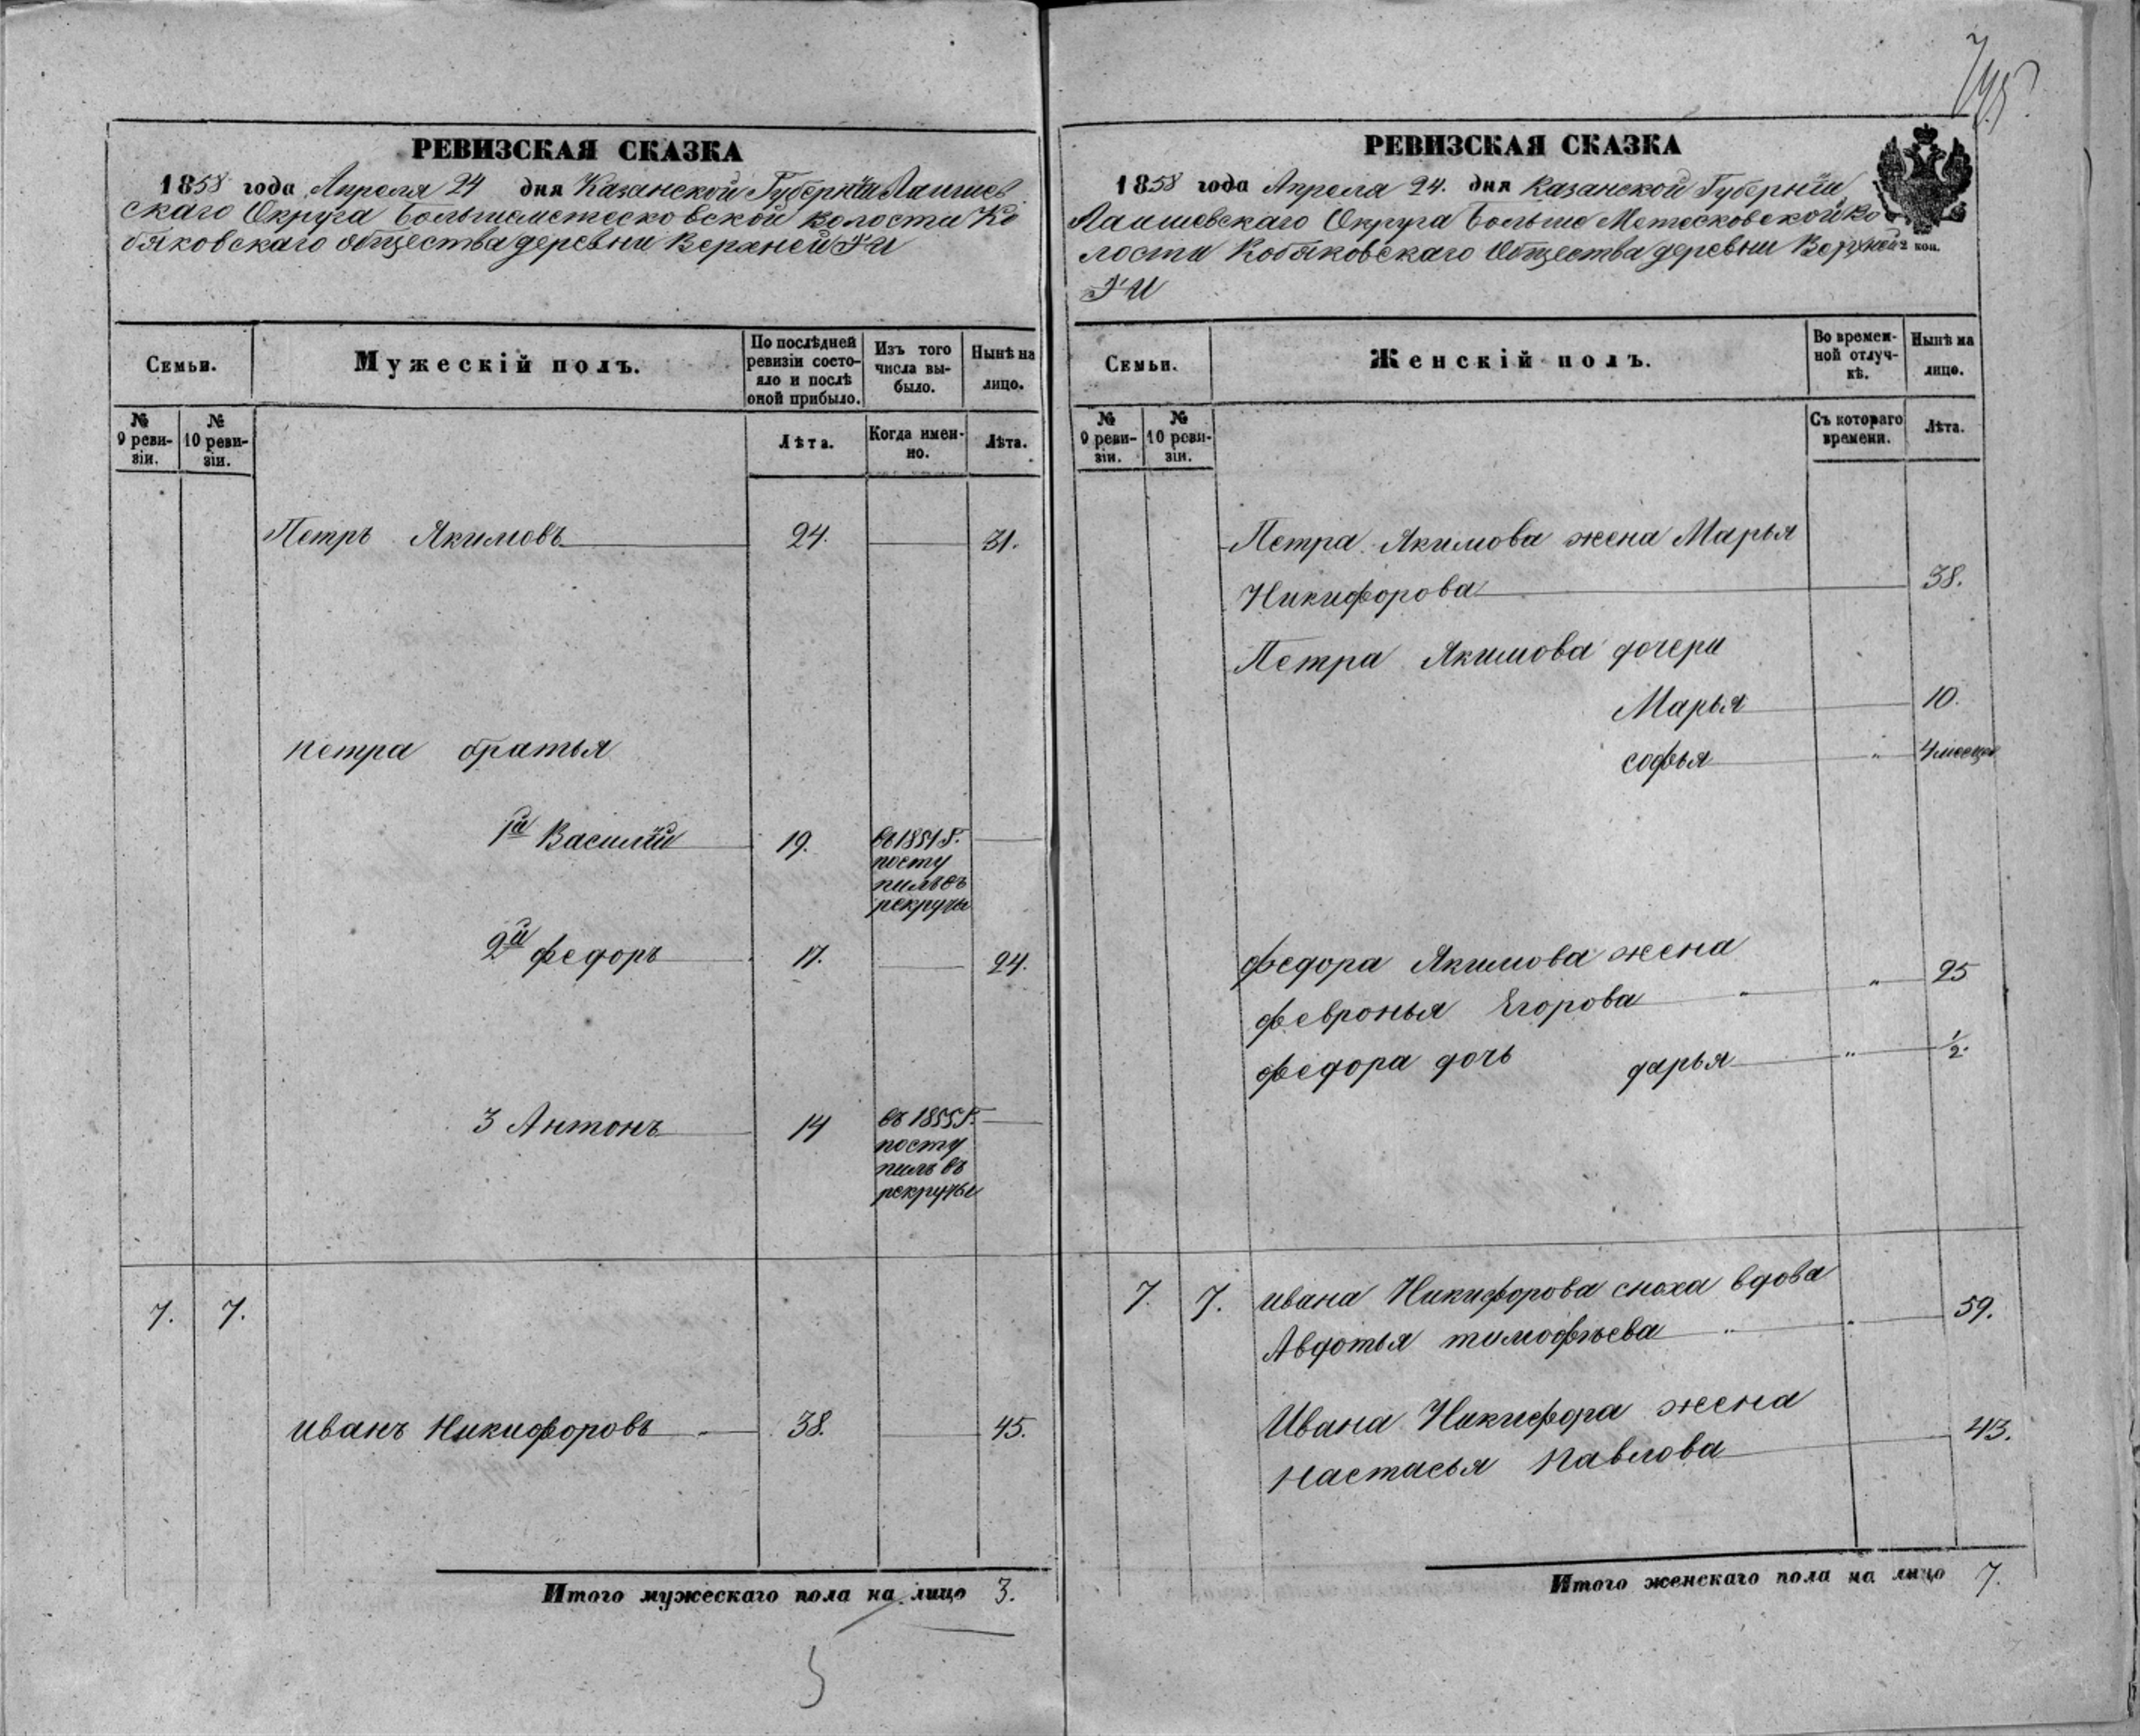 РЕВИЗСКАЯ СКАЗКА
1858 года Апреля 24 дня Казанской Губерніи Лаишев
скаго Округа Большеметесковской волости Ко
бяковскаго общества деревни Верхней
Семьи.
Мужескій полъ.
По послѣдней
ревизіи состо-
яло и послѣ
оной прибыло.
Изъ того
числа вы-
было.
Нынѣ на
лицо.
№
9 реви-
зіи.
№
10 реви-
зіи.
Лѣта.
Когда имен-
но.
Лѣта.
Петръ Якимовъ 24. 31.
петра братья
1й Василій 19.
въ 1851 г.
посту
пилъ въ
рекруты
2й федоръ 17. 24.
3 Антонъ 14
въ 1855 г.
посту
пилъ въ
рекруты
7. 7.
иванъ Никифоровъ 38. 45.
Итого мужескаго пола на лицо 3.
РЕВИЗСКАЯ СКАЗКА
1858 года Апреля 24. дня Казанской Губерніи
Лаишевскаго Округа Больше Метесковской во
лости Кобяковскаго Общества деревни Верхней
2 коп.
Семьи.
Женскій полъ.
Во времен-
ной отлуч-
кѣ.
Нынѣ на
лицо.
№
9 реви-
зіи.
№
10 реви-
зіи.
Съ котораго
времени.
Лѣта.
Петра Якимова жена Марья
Никифорова 38.
Петра Якимова дочери
Марья 10.
софья 4 месеца
федора Якимова жена
февронья Егорова 25
федора дочь дарья 1/2.
7. 7. ивана Никифорова сноха вдова
Авдотья тимофѣева 59.
Ивана Никифора жена
настасья павлова 43.
Итого женскаго пола на лицо 7.